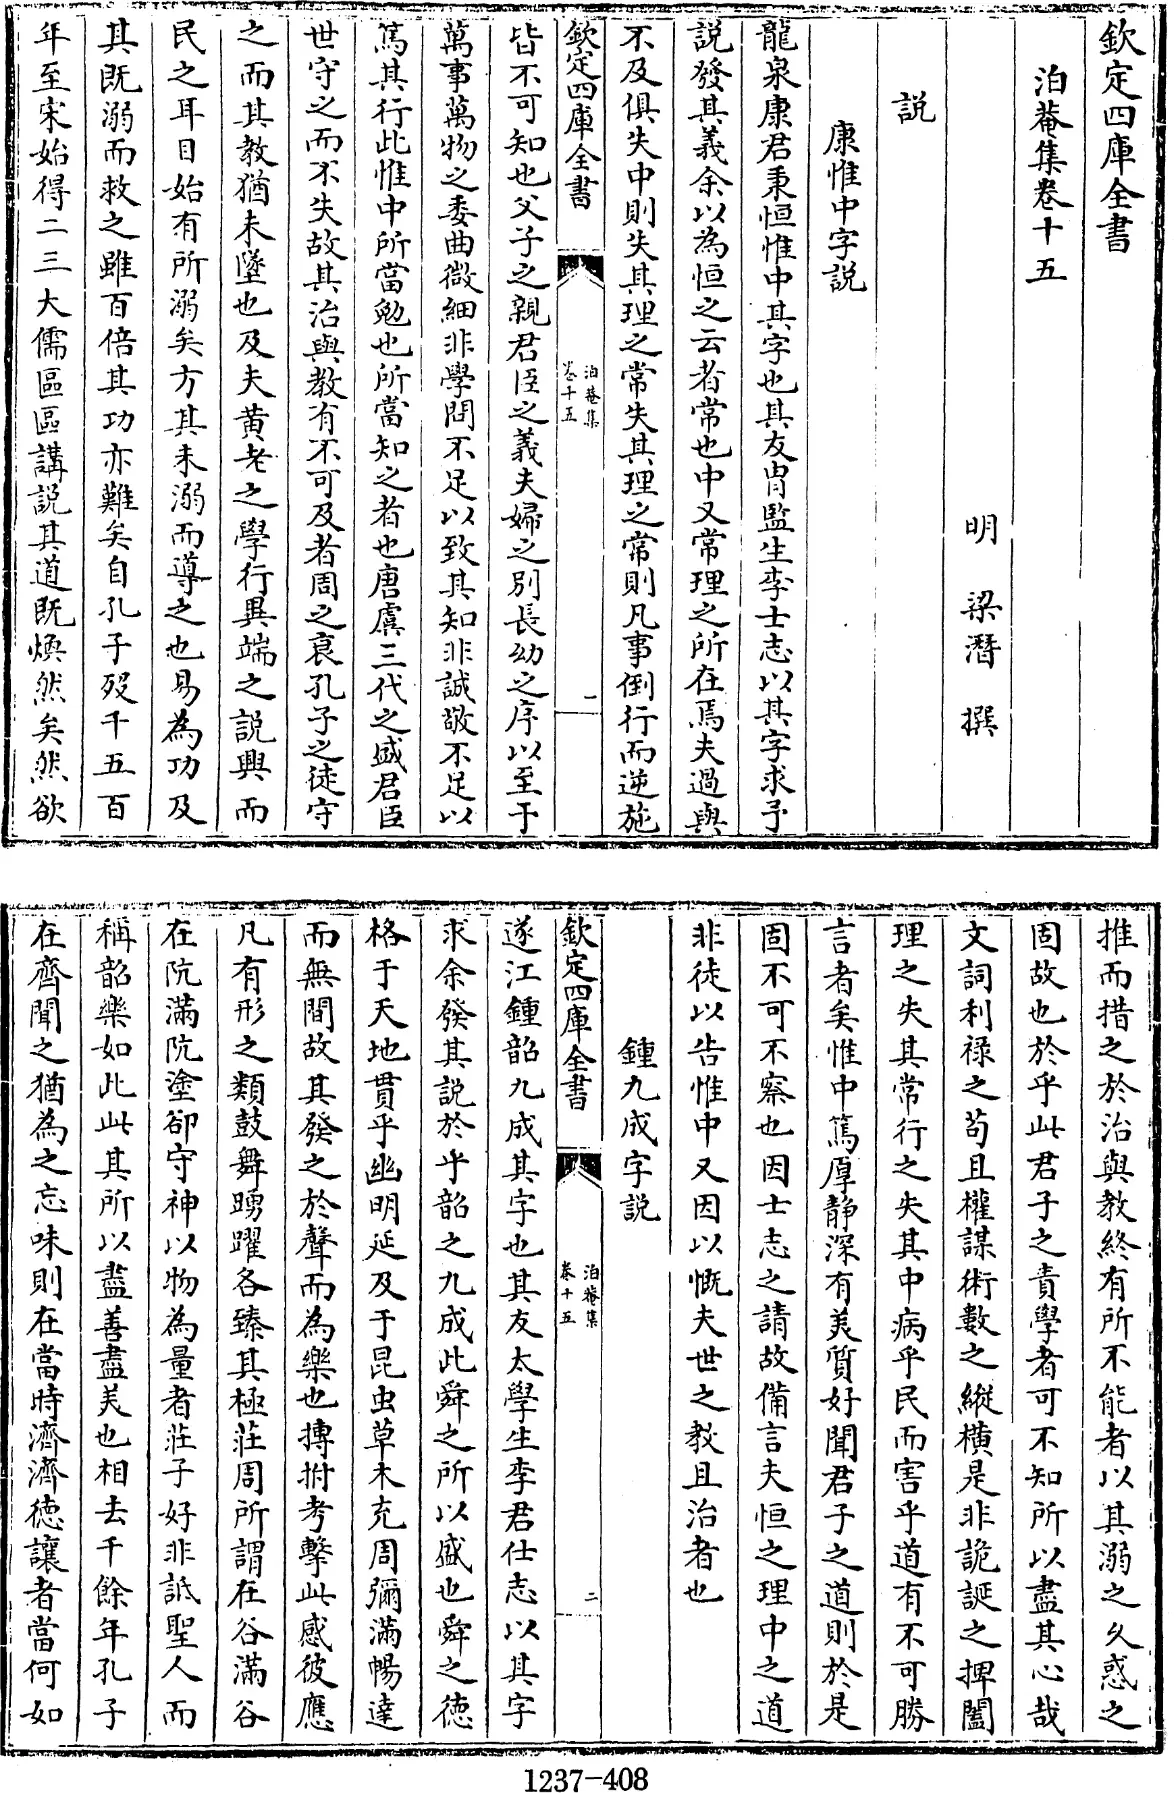 欽定四庫全書
泊菴集卷十五
明 梁潛 撰
説
康惟中字説
龍泉康君秉恒惟中其字也其友胄監生李士志以其字求予
説發其義余以為恒之云者常也中又常理之所在焉夫過與
不及俱失中則失其理之常失其理之常則凡事倒行而逆施
欽定四庫全書
泊菴集
卷十五
一
皆不可知也父子之親君臣之義夫婦之别長幼之序以至于
萬事萬物之委曲微細非學問不足以致其知非誠敬不足以
篤其行此惟中所當勉也所當知之者也唐虞三代之盛君臣
世守之而不失故其治與教有不可及者周之衰孔子之徒守
之而其教猶未墜也及夫黄老之學行異端之説興而
民之耳目始有所溺矣方其未溺而導之也易為功及
其既溺而救之雖百倍其功亦難矣自孔子殁千五百
年至宋始得二三大儒區區講説其道既煥然矣然欲
推而措之於治與教終有所不能者以其溺之乆惑之
固故也於乎此君子之責學者可不知所以盡其心哉
文詞利禄之苟且權謀術數之縱横是非詭誕之捭闔
理之失其常行之失其中病乎民而害乎道有不可勝
言者矣惟中篤厚静深有美質好聞君子之道則於是
固不可不察也因士志之請故備言夫恒之理中之道
非徒以告惟中又因以慨夫世之教且治者也
鍾九成字説
欽定四庫全書
泊菴集
卷十五
二
遂江鍾韶九成其字也其友太學生李君仕志以其字
求余發其説於乎韶之九成此舜之所以盛也舜之徳
格于天地貫乎幽明延及于昆虫草木充周彌滿暢達
而無間故其發之於聲而為樂也摶拊考擊此感彼應
凡有形之類鼓舞踴躍各臻其極莊周所謂在谷滿谷
在阬滿阬塗卻守神以物為量者莊子好非詆聖人而
稱韶樂如此此其所以盡善盡美也相去千餘年孔子
在齊聞之猶為之忘味則在當時濟濟徳讓者當何如
1237-408